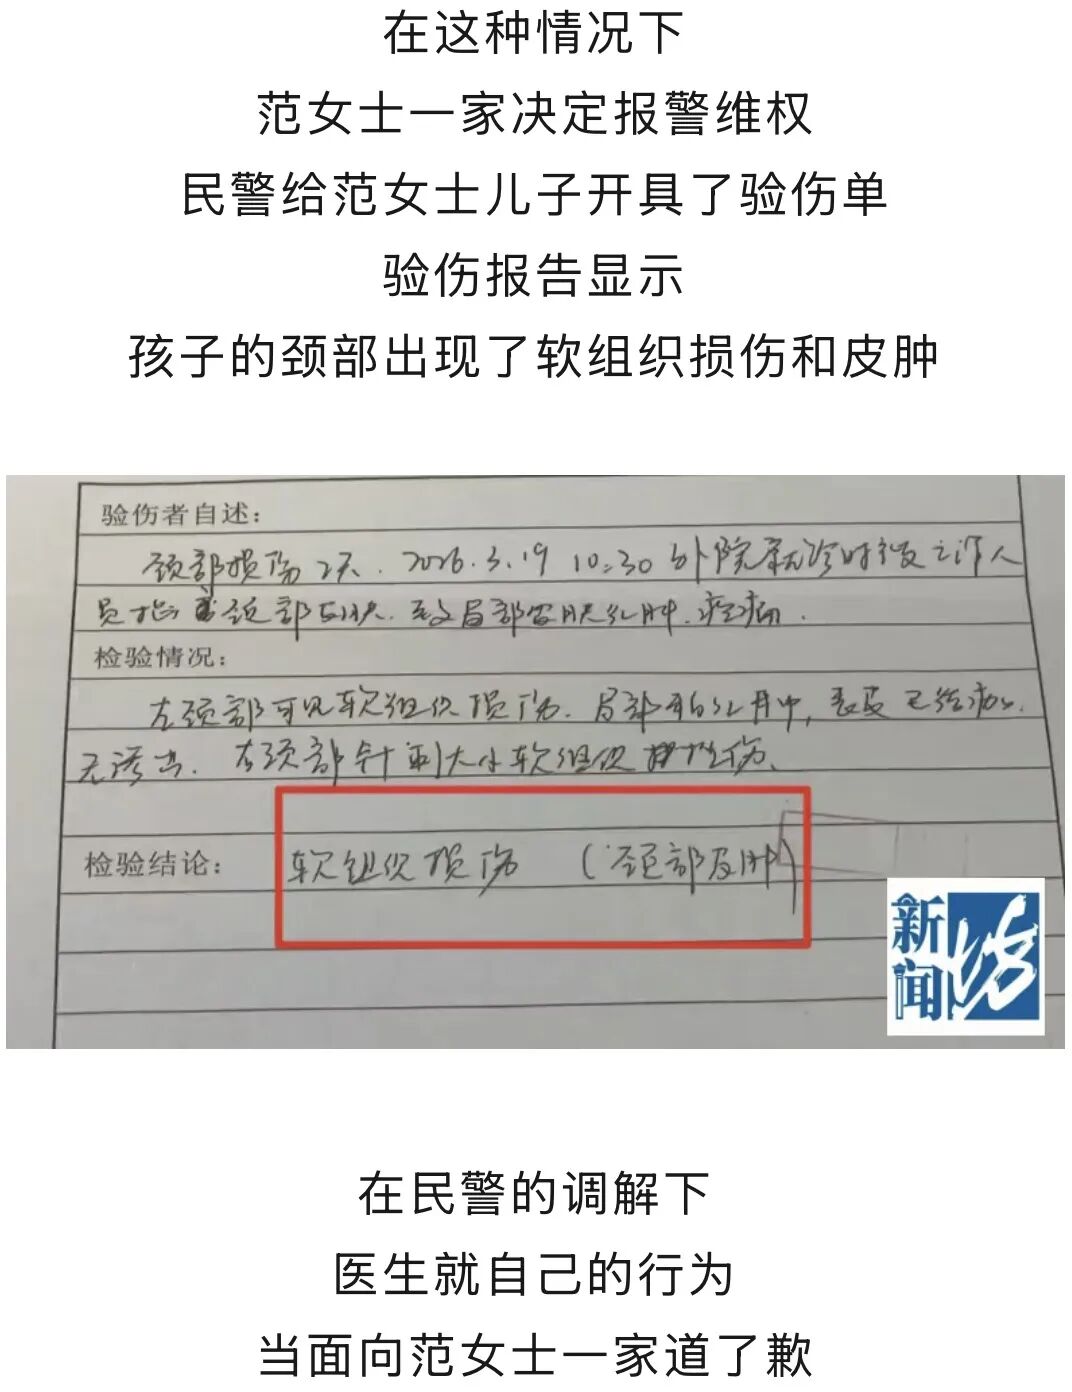 在这种情况下
范女士一家决定报警维权
民警给范女士儿子开具了验伤单
验伤报告显示
孩子的颈部出现了软组织损伤和皮肿
验伤者自述：
颈部损伤2天．2026.3.19 10:30 外院就诊时被工作人
员 颈部 致局部 红肿．疼痛．
检验情况：
左颈部可见软组织损伤．局部 红肿，表皮已结痂．
无渗出．左颈部针刺大小软组织 伤．
检验结论：软组织损伤（颈部皮肿）
新闻坊
在民警的调解下
医生就自己的行为
当面向范女士一家道了歉